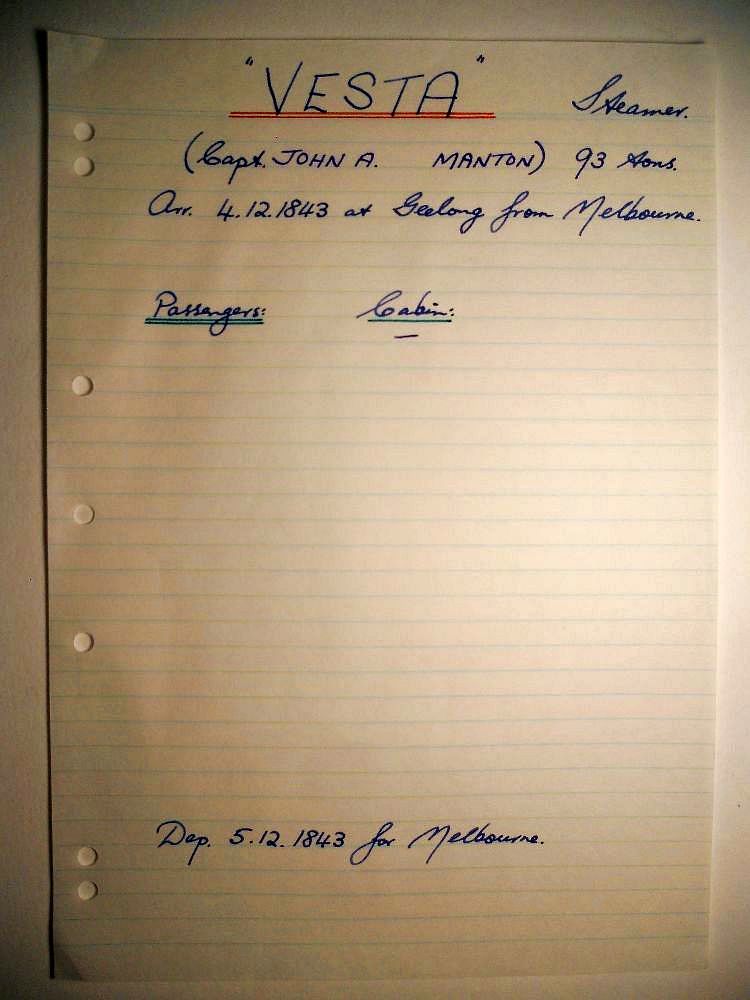 "VESTA" Steamer.
(Capt. JOHN A. MANTON) 93 tons.
Arr. 4.12.1843 at Geelong from Melbourne.
Passengers: Cabin:
—
Dep. 5.12.1843 for Melbourne.